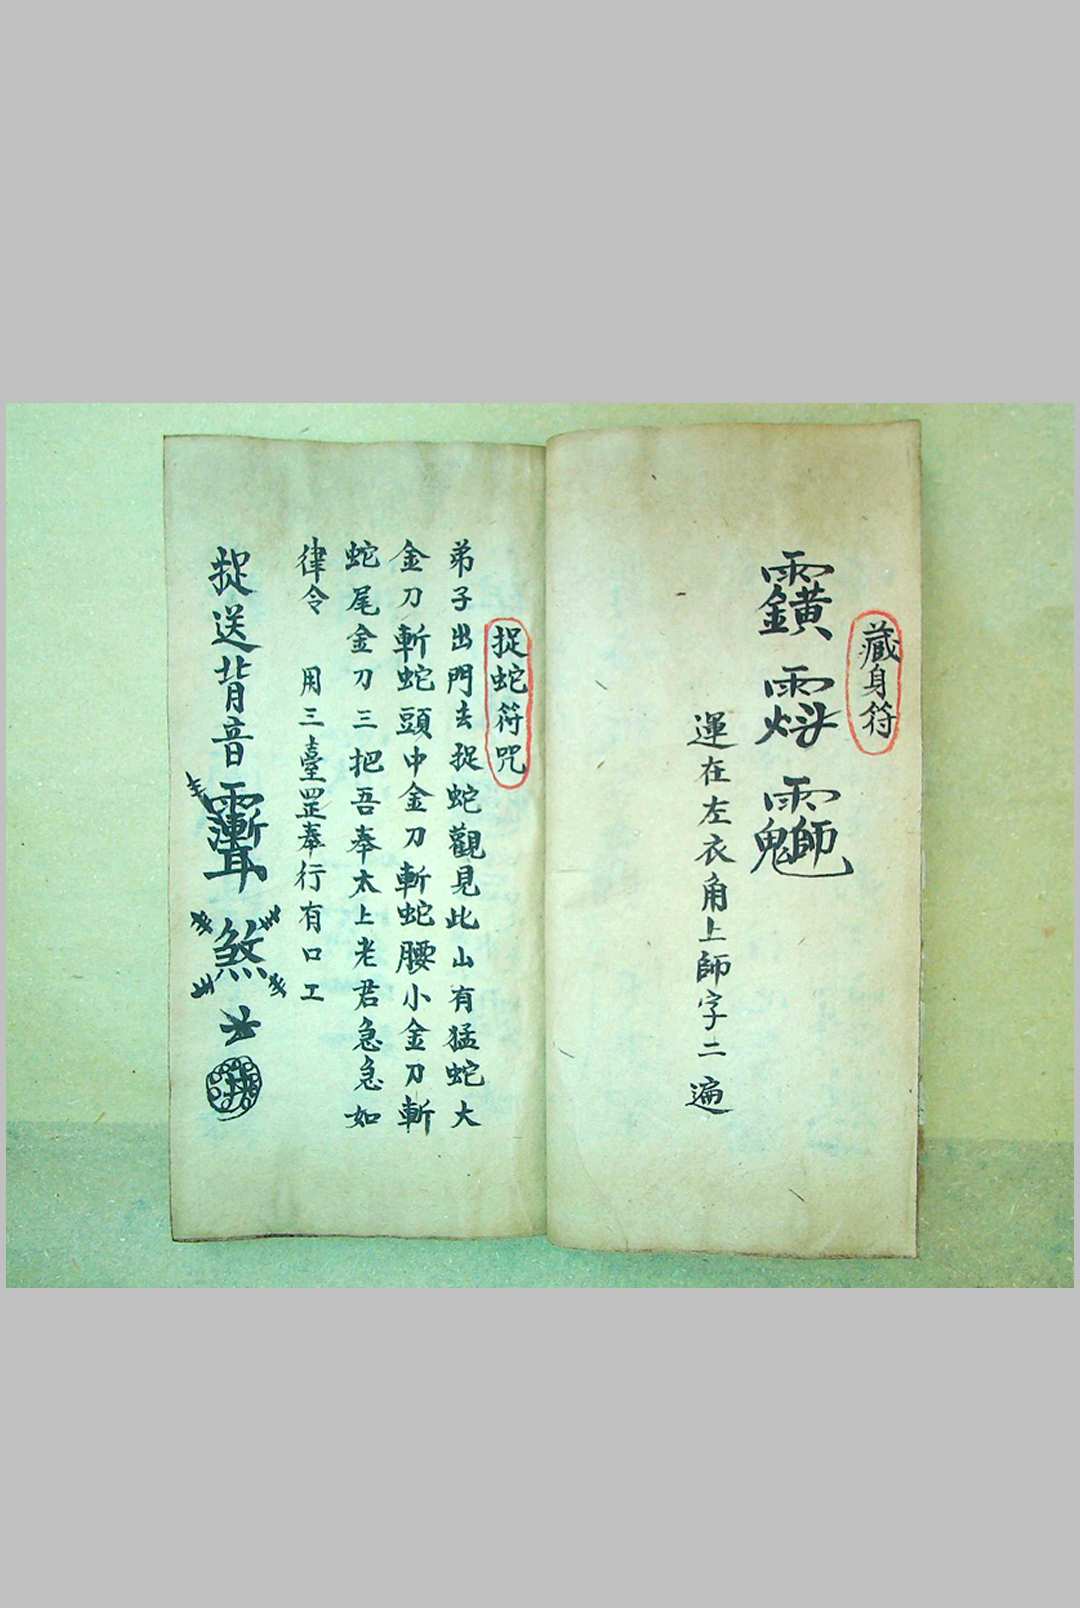 藏身符
運在左衣角上師字二遍
捉蛇符咒
弟子出門去捉蛇觀見此山有猛蛇大
金刀斬蛇頭中金刀斬蛇腰小金刀斬
蛇尾金刀三把吾奉太上老君急急如
律令 用三臺罡奉行有口工
捉送背音 煞